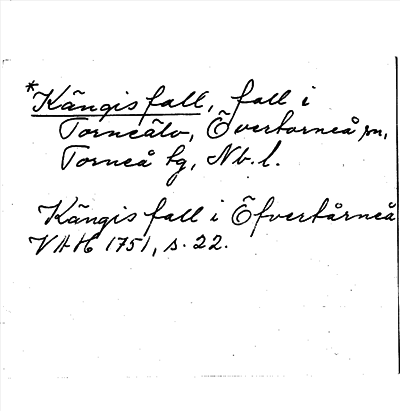 *Kängisfall, fall i
Torneälv, Övertorneå sn,
Torneå tg, Nb. l.
Kängis fall i Öfvertårneå
VAH 1751, s. 22.